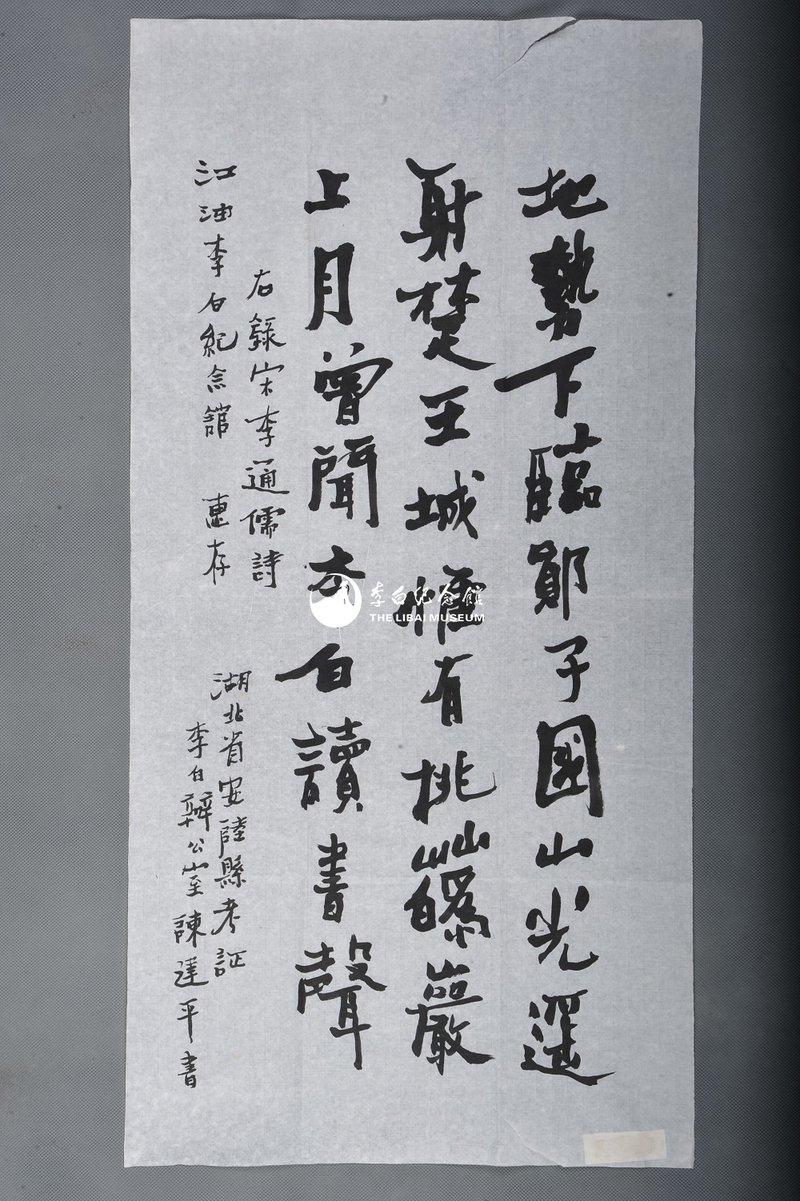 地勢下臨鄖子國山光遥
射楚王城惟有桃蘤巖
上月曾聞李白讀書聲
右錄宋李通儒詩
江油李白紀念館 惠存
湖北省安陸縣考証
李白辦公室陳達平書
李白纪念館
THE LIBAI MUSEUM